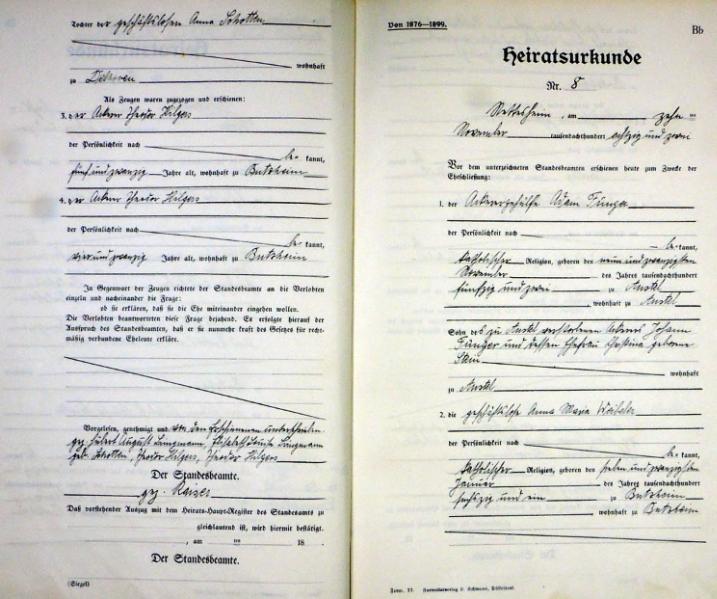 Tochter der geschäftslosen Anna Schotten
wohnhaft
zu
Als Zeugen waren zugezogen und erschienen:
3. der Ackerer Theodor Hilgers
der Persönlichkeit nach
be- kannt,
fünfundzwanzig Jahre alt, wohnhaft zu Butzheim
4. der Ackerer Theodor Hilgers
der Persönlichkeit nach
be- kannt,
vierundzwanzig Jahre alt, wohnhaft zu Butzheim
In Gegenwart der Zeugen richtete der Standesbeamte an die Verlobten
einzeln und nacheinander die Frage:
ob sie erklären, daß sie die Ehe miteinander eingehen wollen.
Die Verlobten beantworteten diese Frage bejahend. Es erfolgte hierauf der
Ausspruch des Standesbeamten, daß er sie nunmehr kraft des Gesetzes für recht-
mäßig verbundene Eheleute erkläre.
Vorgelesen, genehmigt und von den Erschienenen unterschrieben
gez. Hubert August Langmann, Elisabeth Langmann
geb. Schotten, Theodor Hilgers, Theodor Hilgers
Der Standesbeamte.
gez. Kaiser
Daß vorstehender Auszug mit dem Heirats-Haupt-Register des Standesamts zu
gleichlautend ist, wird hiermit bestätigt.
, am ten 18
Der Standesbeamte.
(Siegel)
Von 1876—1899.
Bb
Heiratsurkunde
Nr. 8
Nettesheim, am zehn ten
November tausendachthundert achtzig und zwei
Vor dem unterzeichneten Standesbeamten erschienen heute zum Zwecke der
Eheschließung:
1. der Ackergehülfe Adam Fünger
der Persönlichkeit nach
be- kannt,
katholischer Religion, geboren den neun und zwanzigsten
November des Jahres tausendachthundert
fünfzig und zwei zu Anstel
, wohnhaft zu Anstel
Sohn des zu Anstel verstorbenen Ackerers Johann
Fünger und dessen Ehefrau Christina geborene
Stein
wohnhaft
zu Anstel
2. die geschäftslose Anna Maria
der Persönlichkeit nach
be- kannt,
katholischer Religion, geboren den sieben und zwanzigsten
Januar des Jahres tausendachthundert
sechszig und ein zu Butzheim
, wohnhaft zu Butzheim